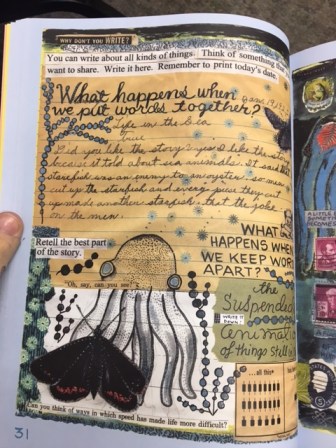 WHY DON'T YOU WRITE?
You can write about all kinds of things. Think of something that
want to share. Write it here. Remember to print today's date.
What happens when
we put words together?
Life in the Sea
true
Did you like the story? yes I like the story
because it told about sea animals. It said that
starfish was an enemy to an oyster so men
cut up the starfish and every piece they cut
up made another starfish, that the joke
on the men.
Retell the best part
of the story.
"Oh, say, can you see?"
WHAT
HAPPENS WHEN
WE KEEP WORDS
APART?
the
Suspended
WRITE IT
DOWN!
of things still
...all five
Can you think of ways in which speed has made life more difficult?
31